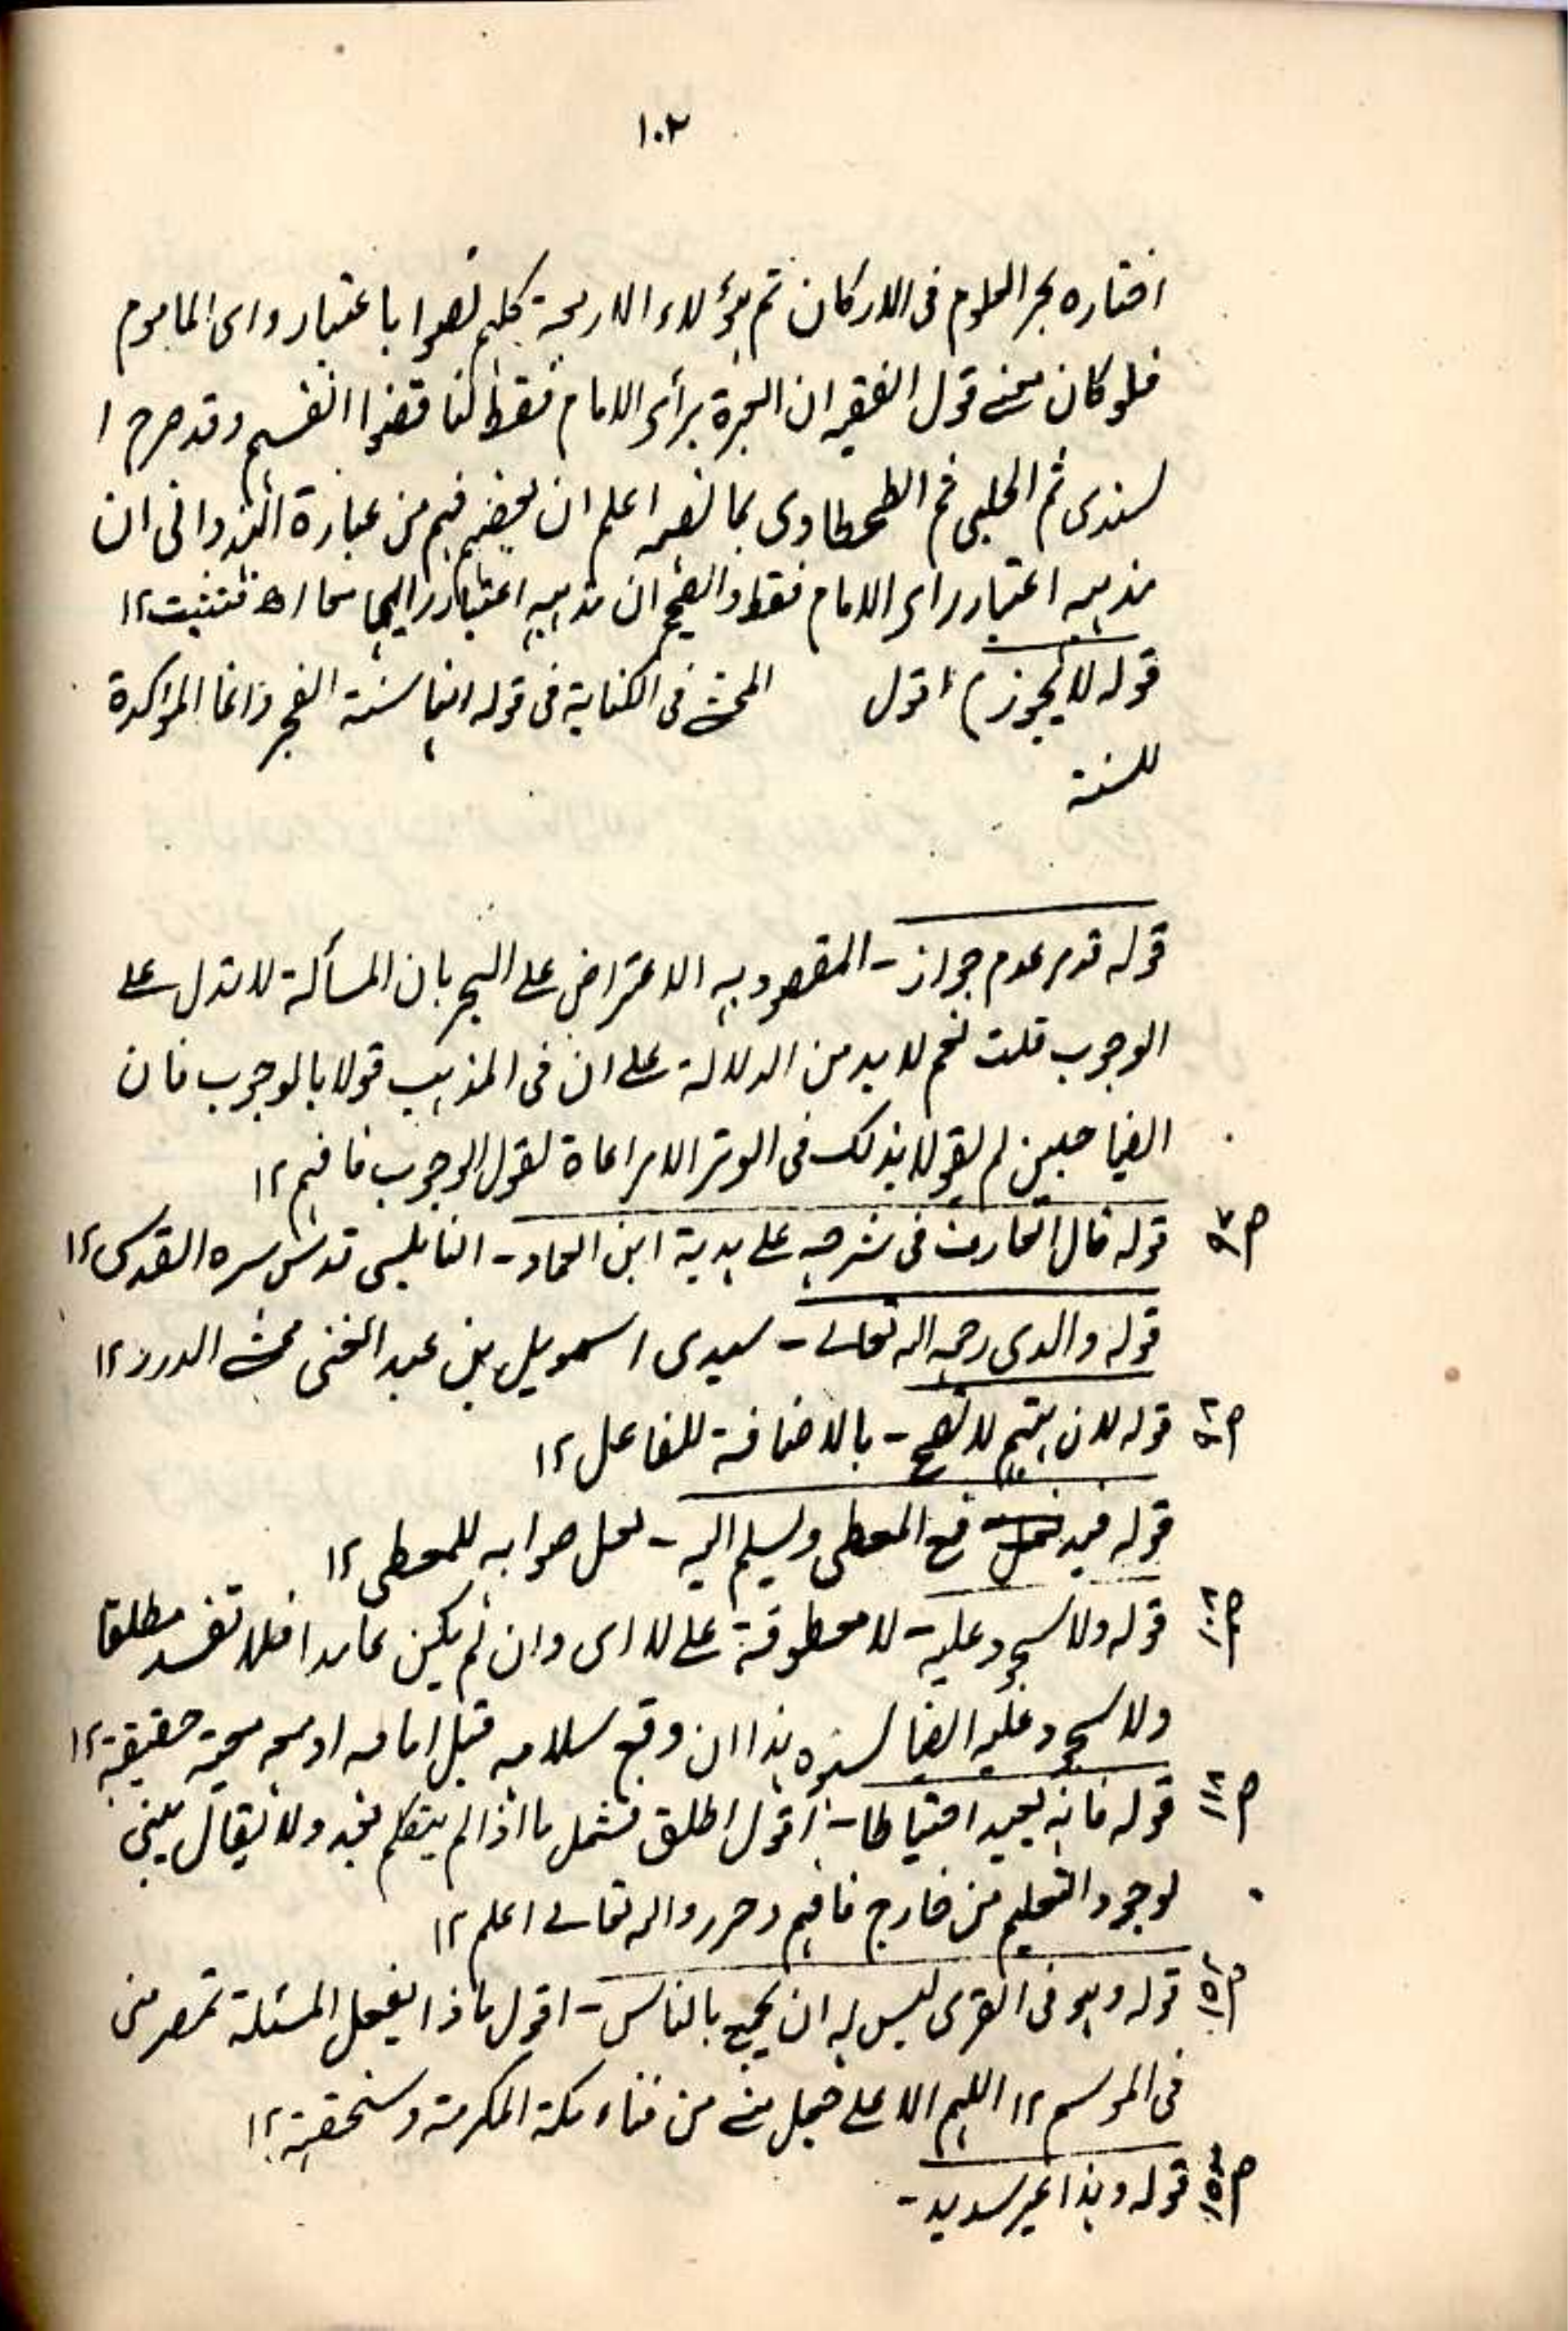 ١٠٢
اختاره بحر العلوم فى الاركان ثم هؤلاء الاربعة كلهم نصوا باعتبار راى الماموم
فلو كان معنے قول الفقيه ان العبرة برأى الامام فقط لناقضوا انفسهم وقد صرح ا
لسندى ثم الحلبى ثم الطحطاوى بما نصه اعلم ان بعضهم فهم من عبارة الهندوانى ان
مذهبه اعتبار راى الامام فقط والصحيح ان مذهبه اعتبار رايهما معا اھ فتثبت ١٢
قوله لا يجوز) اقول المحشے فى الكفاية فى قوله انها سنة الفجر وانما المؤكدة
للسنة
قوله قدم عدم جواز۔ المقصود به الاعتراض علے البحر بان المسألة لا تدل علے
الوجوب قلت نعم لا بد من الدلالة علے ان فى المذهب قولا بالوجوب فان
الصاحبين لم يقولا بذلك فى الوتر الا مراعاة لقول الوجوب فافهم ١٢
قوله قال العارف فى شرحه علے هدية ابن العماد۔ النابلسى قدس سره القدسى ١٢
قوله والدى رحمه الله تعالے۔ سيدى اسمعيل بن عبد الغنى محشے الدرر ١٢
ص قوله لان يتيم لا تصح۔ بالاضافة للفاعل ١٢
قوله فيدفع المعطى ويسلم اليه۔ لعل صوابه للمعطى ١٢
قوله ولا سجود عليه۔ لا معطوفة علے لا اى وان لم يكن عامدا فلا تفسد مطلقا
ولا سجود عليه ايضا لسهوه هذا ان وقع سلامه قبل امامه او معه معية حقيقية ١٢
ص قوله فانه يعيد احتياطا۔ اقول اطلق فشمل ما اذا لم يتكلم بعد ولا يقال يبنى
لوجود التعليم من خارج فافهم وحرر والله تعالے اعلم ١٢
قوله وهو فى القرى ليس له ان يجمع بالناس۔ اقول ماذا يفعل المسئلة تمصر منى
فى الموسم ١٢ اللهم الا علے جعل منے من فناء مكة المكرمة وسنحققه ١٢
قوله وهذا غير سديد۔